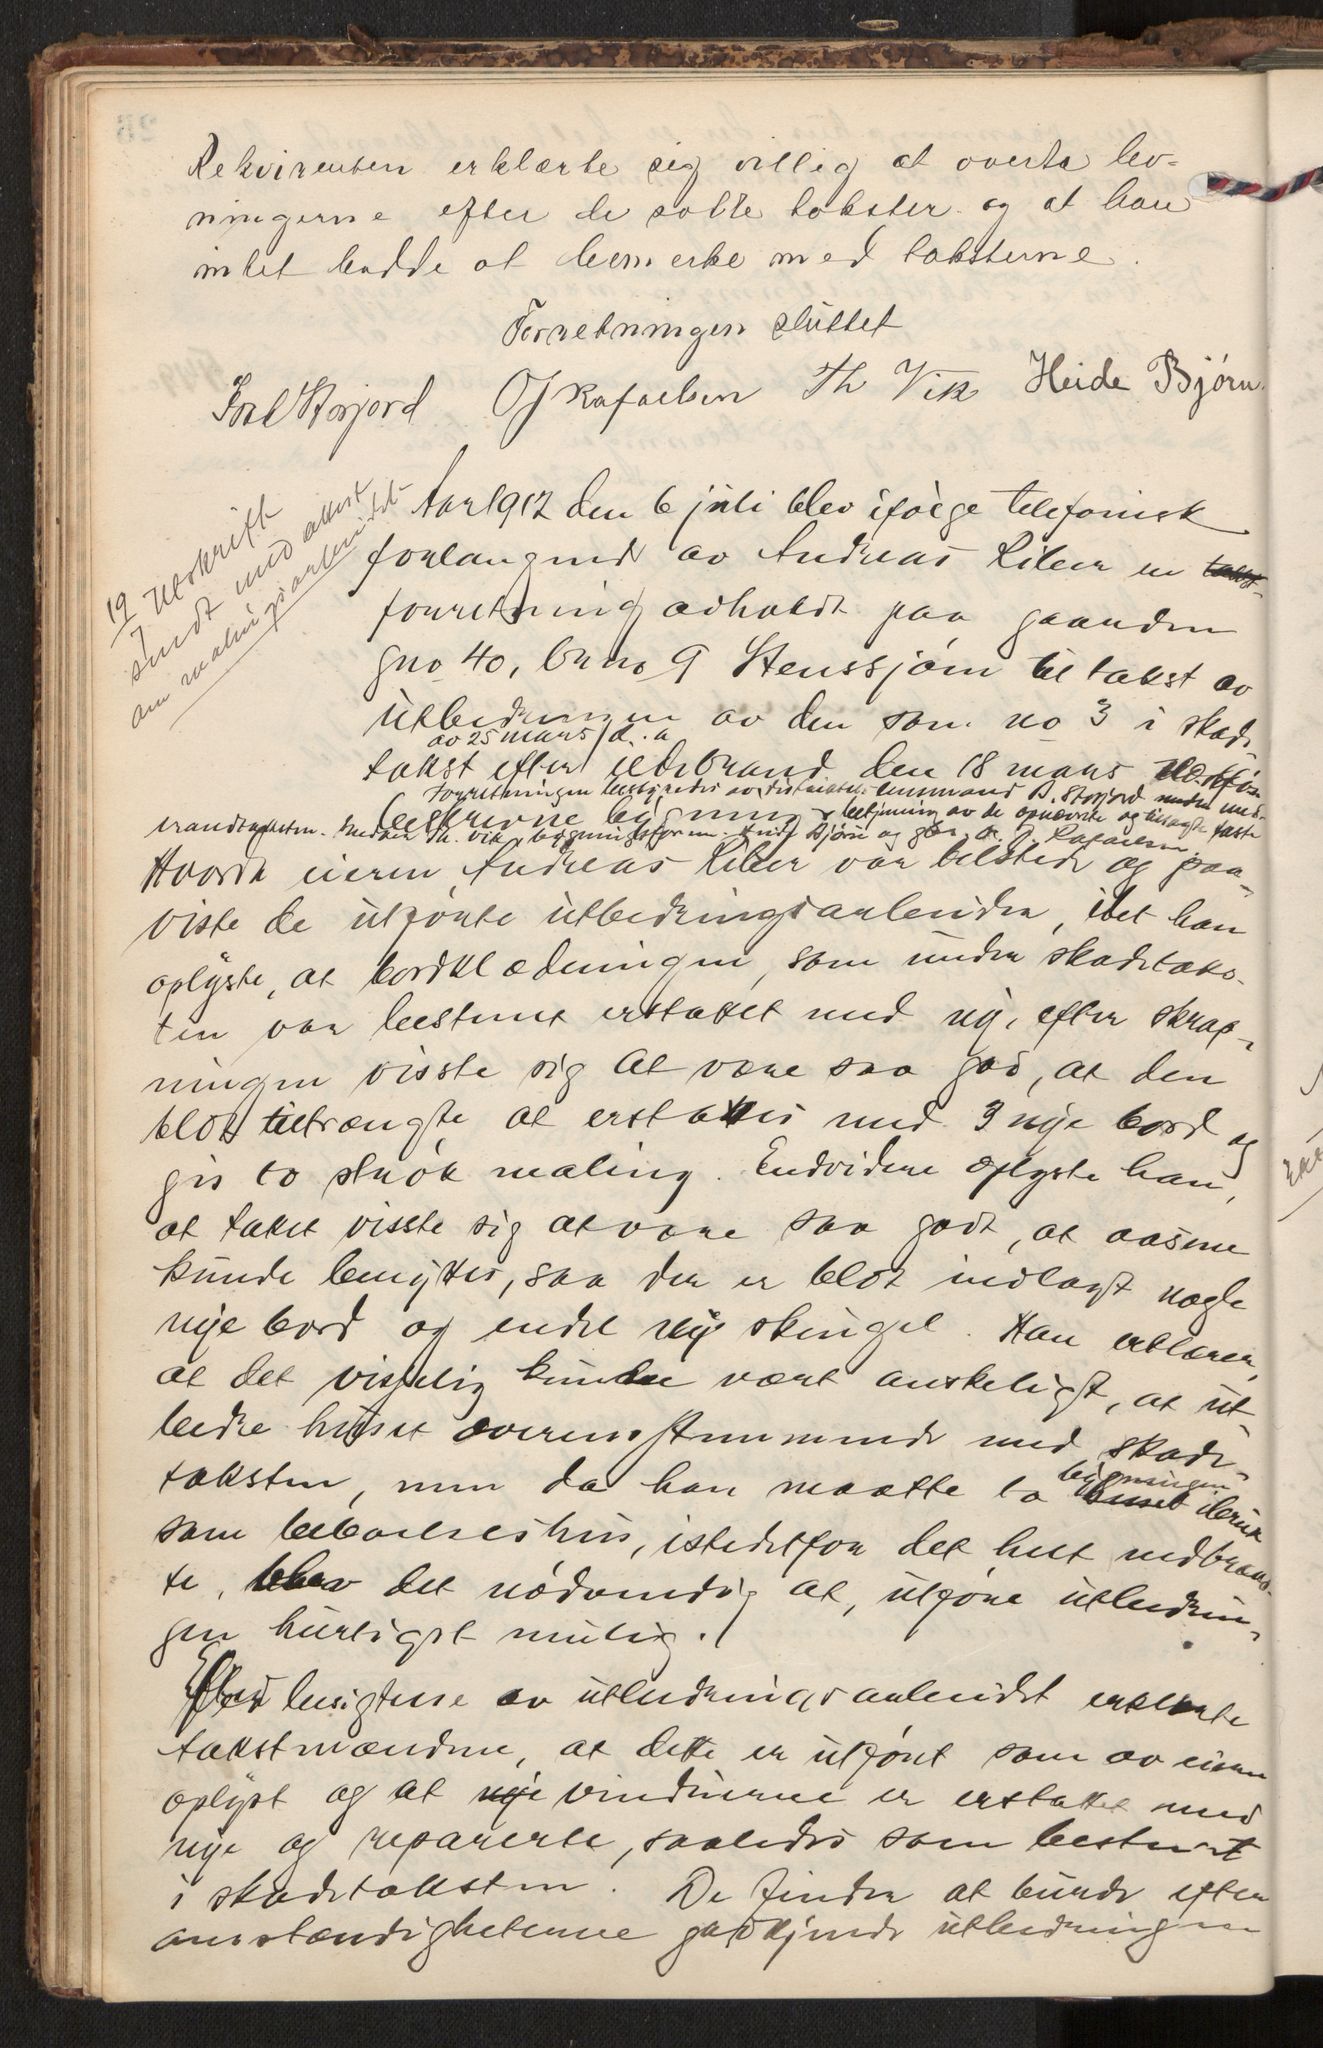 Rekvirenten erklærte sig villig at overta lev-
ningerne efter de satte takster og at han
intet hadde at bemerke med taksterne.
Forretningen sluttet
Storjord O J Rafaelsen Th Vik Heide Bjørn
19/7 Utskrift
sendt med attest
om malingsarbeidet
Aar 1912 den 6 juli blev ifølge telefonisk
forlangende av Andreas Liber en takst-
forretning avholdt paa gaarden
gno 40, brno 9 Stenssjøen til takst av
utbedringen av den som no 3 i skade-
av 25 mars d. a
takst efter ildebrand den 18 mars
Forretningen bestyredes av distriktets lensmand B. Storjord under med-
beskrevne bygning betjening av de opnævnte og faste
brandtakstm. Th. Vik, bygningsform. Bjørn og O. J. Rafaelsen
Hvorda eieren Andreas Liber var tilstede og paa-
viste de utførte utbedringsarbeider, idet han
oplyste, at bordklædningen, som under skadetaks-
ten var bestemt erstattet med ny, efter skrap-
ningen visste sig at være saa god, at den
blot tiltrængte at erstattes med 3 nye bord og
gis to strøk maling. Endvidere oplyste han,
at taket visste sig at være saa godt, at aasene
kunde benyttes, saa der er blot indlagt nogle
nye bord og endel ny skingel. Han erklærer,
at det visselig kunde vært ønskeligt, at ut-
bedre huset overensstemmende med skade-
taksten, men da han maatte ta bygningen i bruk
som beboelseshus, istedetfor det helt nedbrænd-
te, blev det nødvendig at utføre utbedrin-
gen hurtigst mulig.
Efter besigtelse av utbedringsarbeidet erklærte
takstmændene, at dette er utført som av eieren
oplyst og at nye vinduerne er erstattet med
nye og reparerte, saaledes som bestemt
i skadetaksten. De finder at burde efter
omstændigheterne godkjende utbedringen